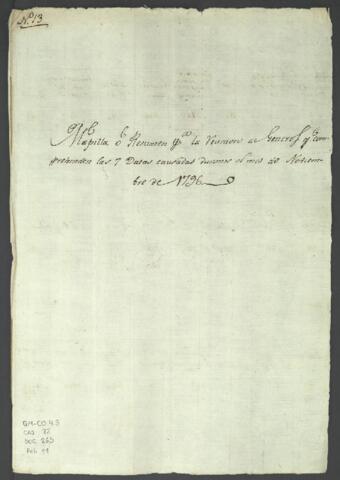 N.º 13
Mapilla ó Resumen pª la Reunion de Generos q̃ com
prehenden las 7 Datas causadas durante el mes de Noviem
bre de 1796
GM-CO.43
CAJ. 72
DOC. 265
FOL. 11